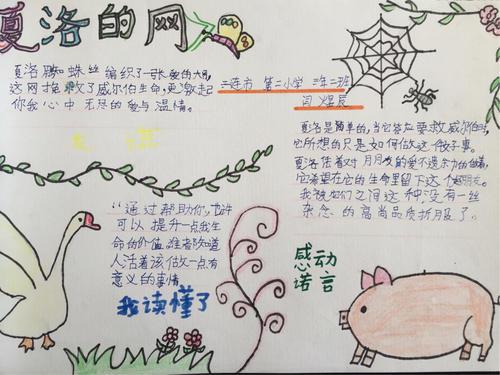 夏洛的网
夏洛用蜘蛛丝编织了一张爱的大网,
这网拯救了威尔伯生命,更激起
你我心中无尽的爱与温情。
第二小学
二班
闫煜辰
夏洛是简单的,当它答应要救威尔伯时,
它所想的只是如何做这个好事。
夏洛凭着对朋友的爱不遗余力的
它希望在它的生命里留下这个朋友。
我被他们之间这种没有一丝
杂念的高尚品质折服了。
“通过帮助你,也许
可以提升一点我生
命的价值,谁都知道
人活着该做一点有
意义的事情。
我读懂了
感动
诺言